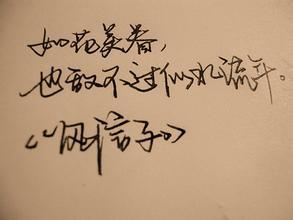 如花美眷,
也敌不过似水流年。
《风信子》